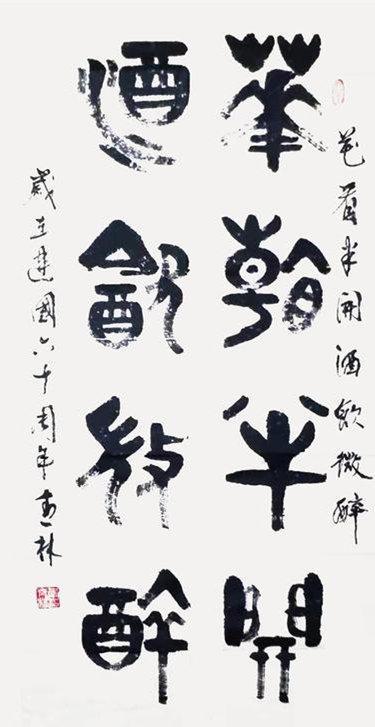 花看半開酒飲微醉
華看半開
酒飲微醉
歲在建國六十周年